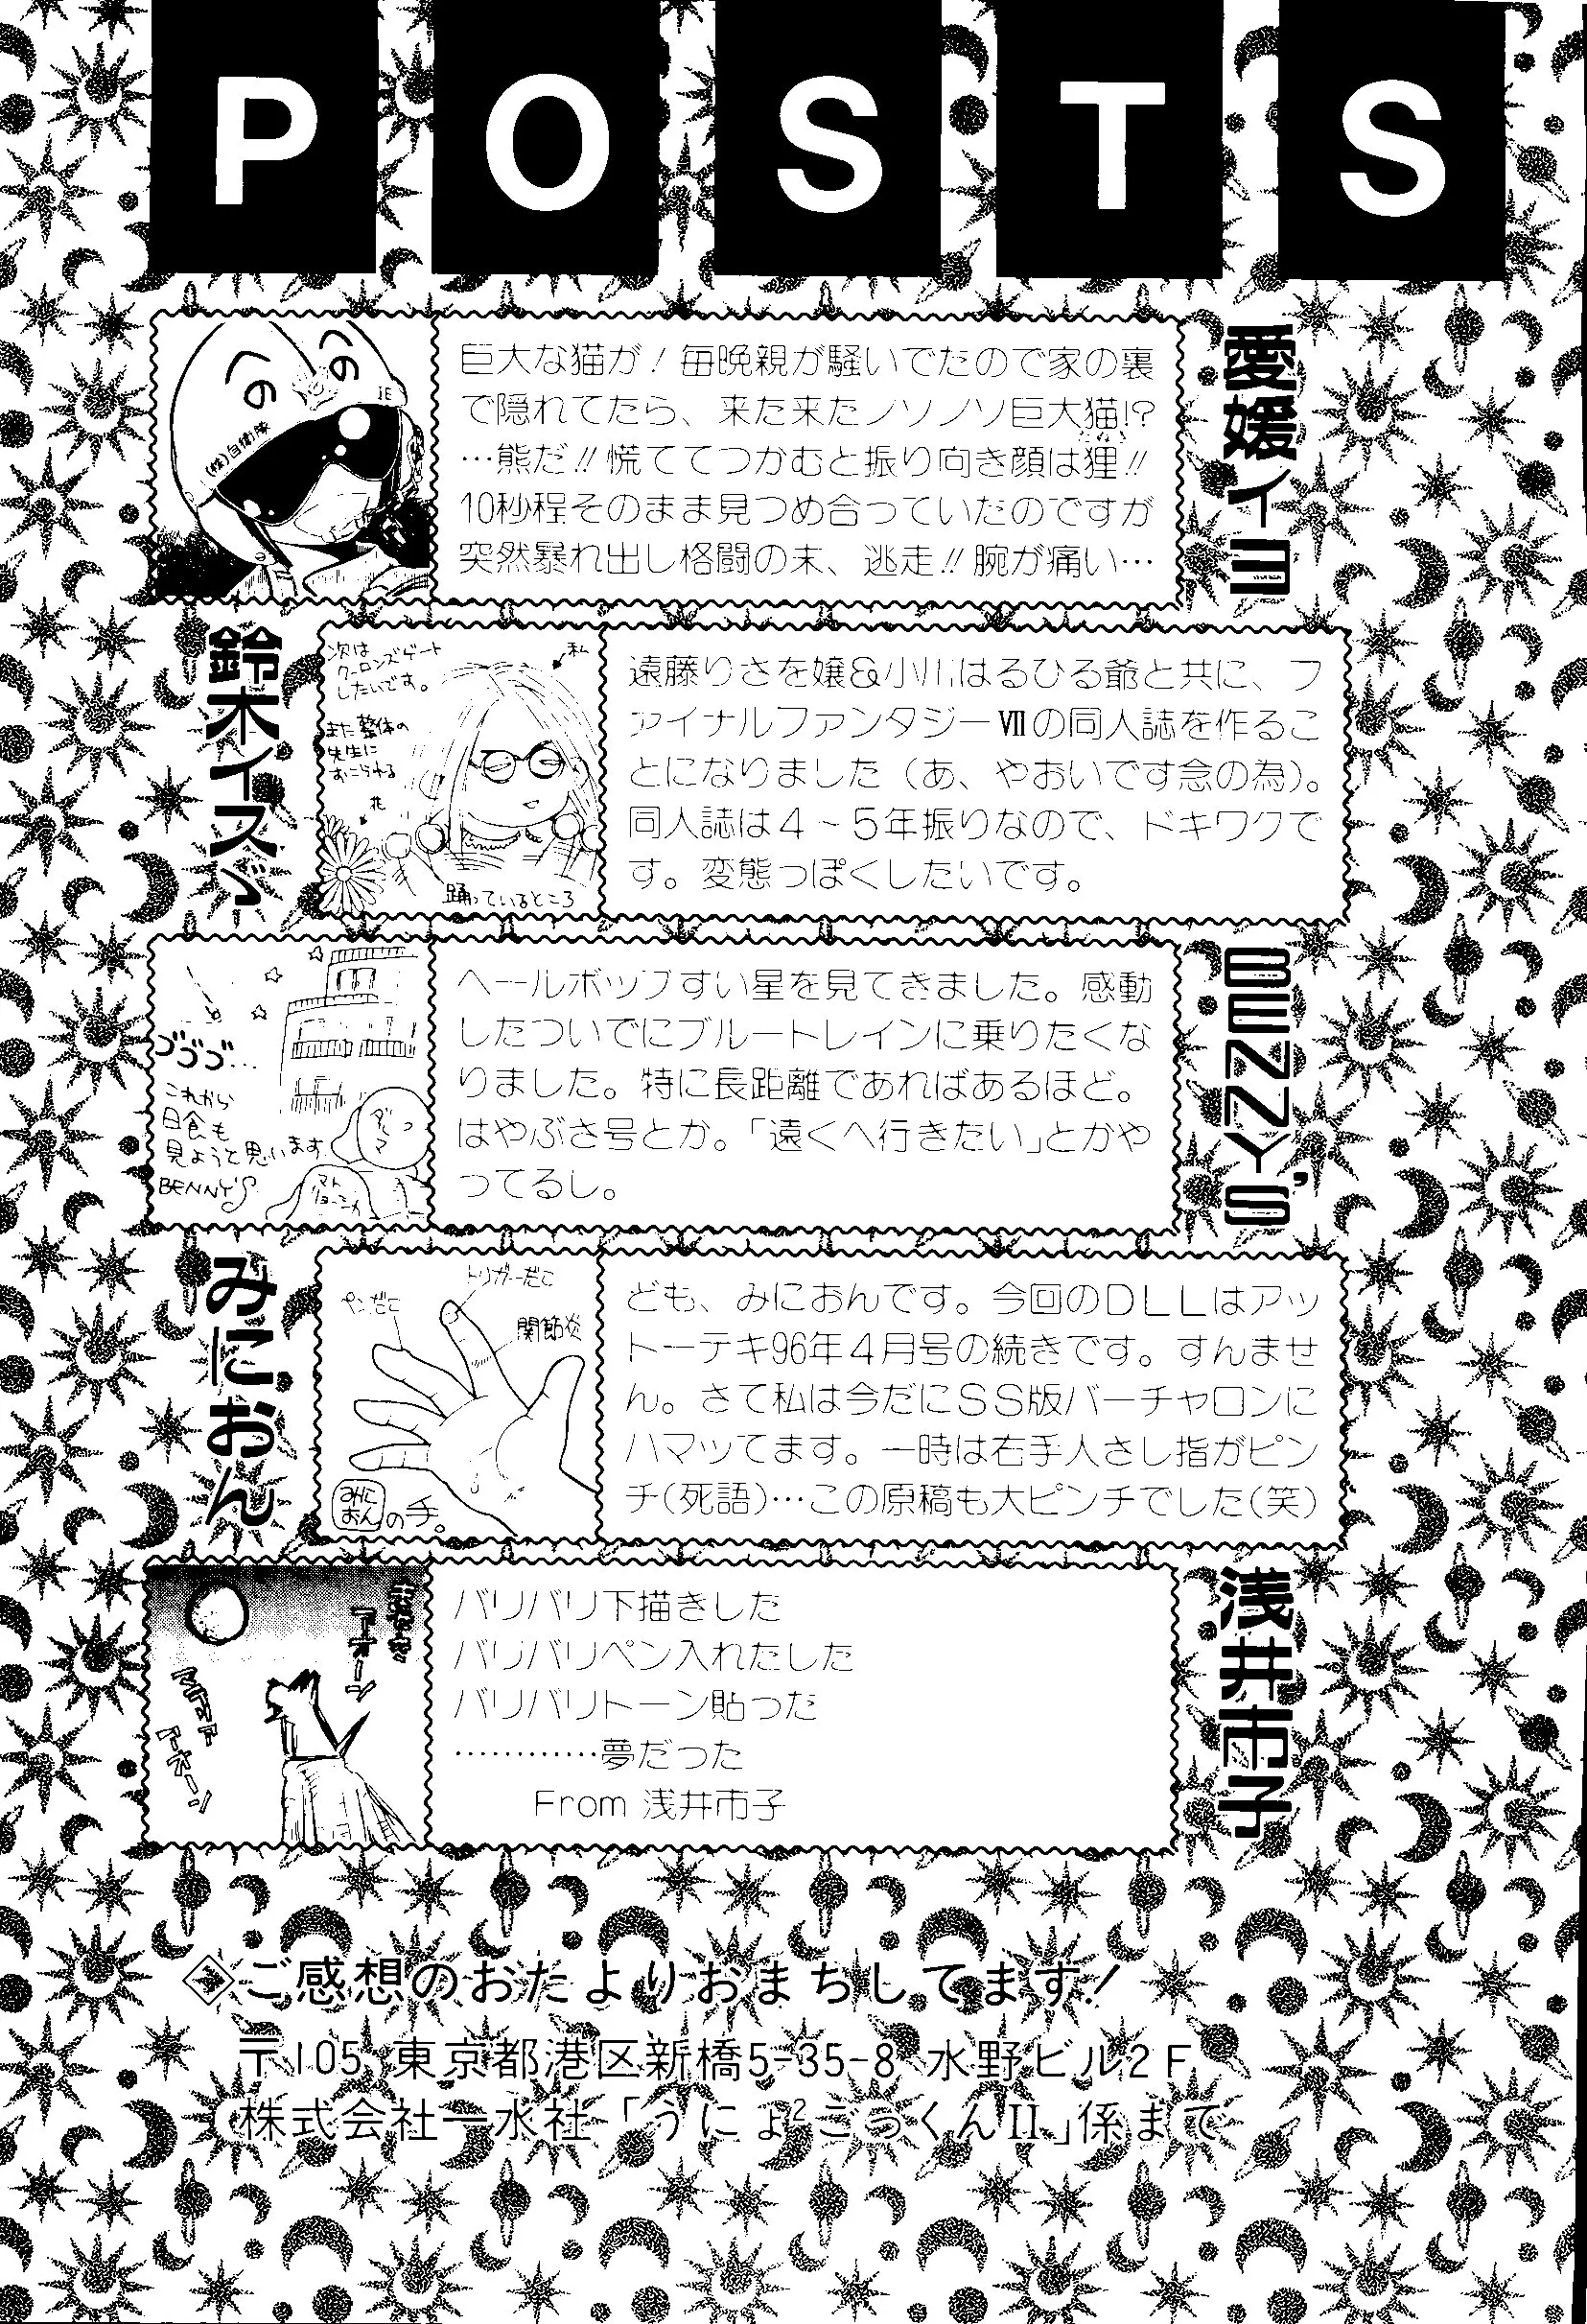 POSTS
愛媛イヨ
くの
くの
JE
(株)自衛隊
巨大な猫が！毎晩親が騒いでたので家の裏
で隠れてたら、来た来たノソノソ巨大猫!?
…熊だ!!慌ててつかむと振り向き顔は狸!!
たぬき
10秒程そのまま見つめ合っていたのですが
突然暴れ出し格闘の末、逃走!!腕が痛い…
鈴木イスヾ
次は
クーロンズゲート
したいです。
私
また整体の
先生に
おこられる
花
踊っているところ
遠藤りさを嬢&小川はるひる爺と共に、フ
ァイナルファンタジーⅦの同人誌を作るこ
とになりました（あ、やおいです念の為）。
同人誌は４～５年振りなので、ドキワクで
す。変態っぽくしたいです。
BENNY'S
ゴゴゴ…
これから
日食も
見ようと思います
BENNY'S
ダルマ
ヘールボップすい星を見てきました。感動
したついでにブルートレインに乗りたくな
りました。特に長距離であればあるほど。
はやぶさ号とか。「遠くへ行きたい」とかや
ってるし。
みにおん
トリガーだこ
ペンだこ
関節炎
みに
おんの手。
ども、みにおんです。今回のＤＬＬはアッ
トーテキ96年４月号の続きです。すんませ
ん。さて私は今だにＳＳ版バーチャロンに
ハマッてます。一時は右手人さし指がピン
チ(死語)…この原稿も大ピンチでした(笑)
浅井市子
アオーン
アオーン
バリバリ下描きした
バリバリペン入れたした
バリバリトーン貼った
…………夢だった
From 浅井市子
ご感想のおたよりおまちしてます！
〒105 東京都港区新橋5-35-8 水野ビル2F
株式会社一水社「うにょ²ごっくんⅡ」係まで